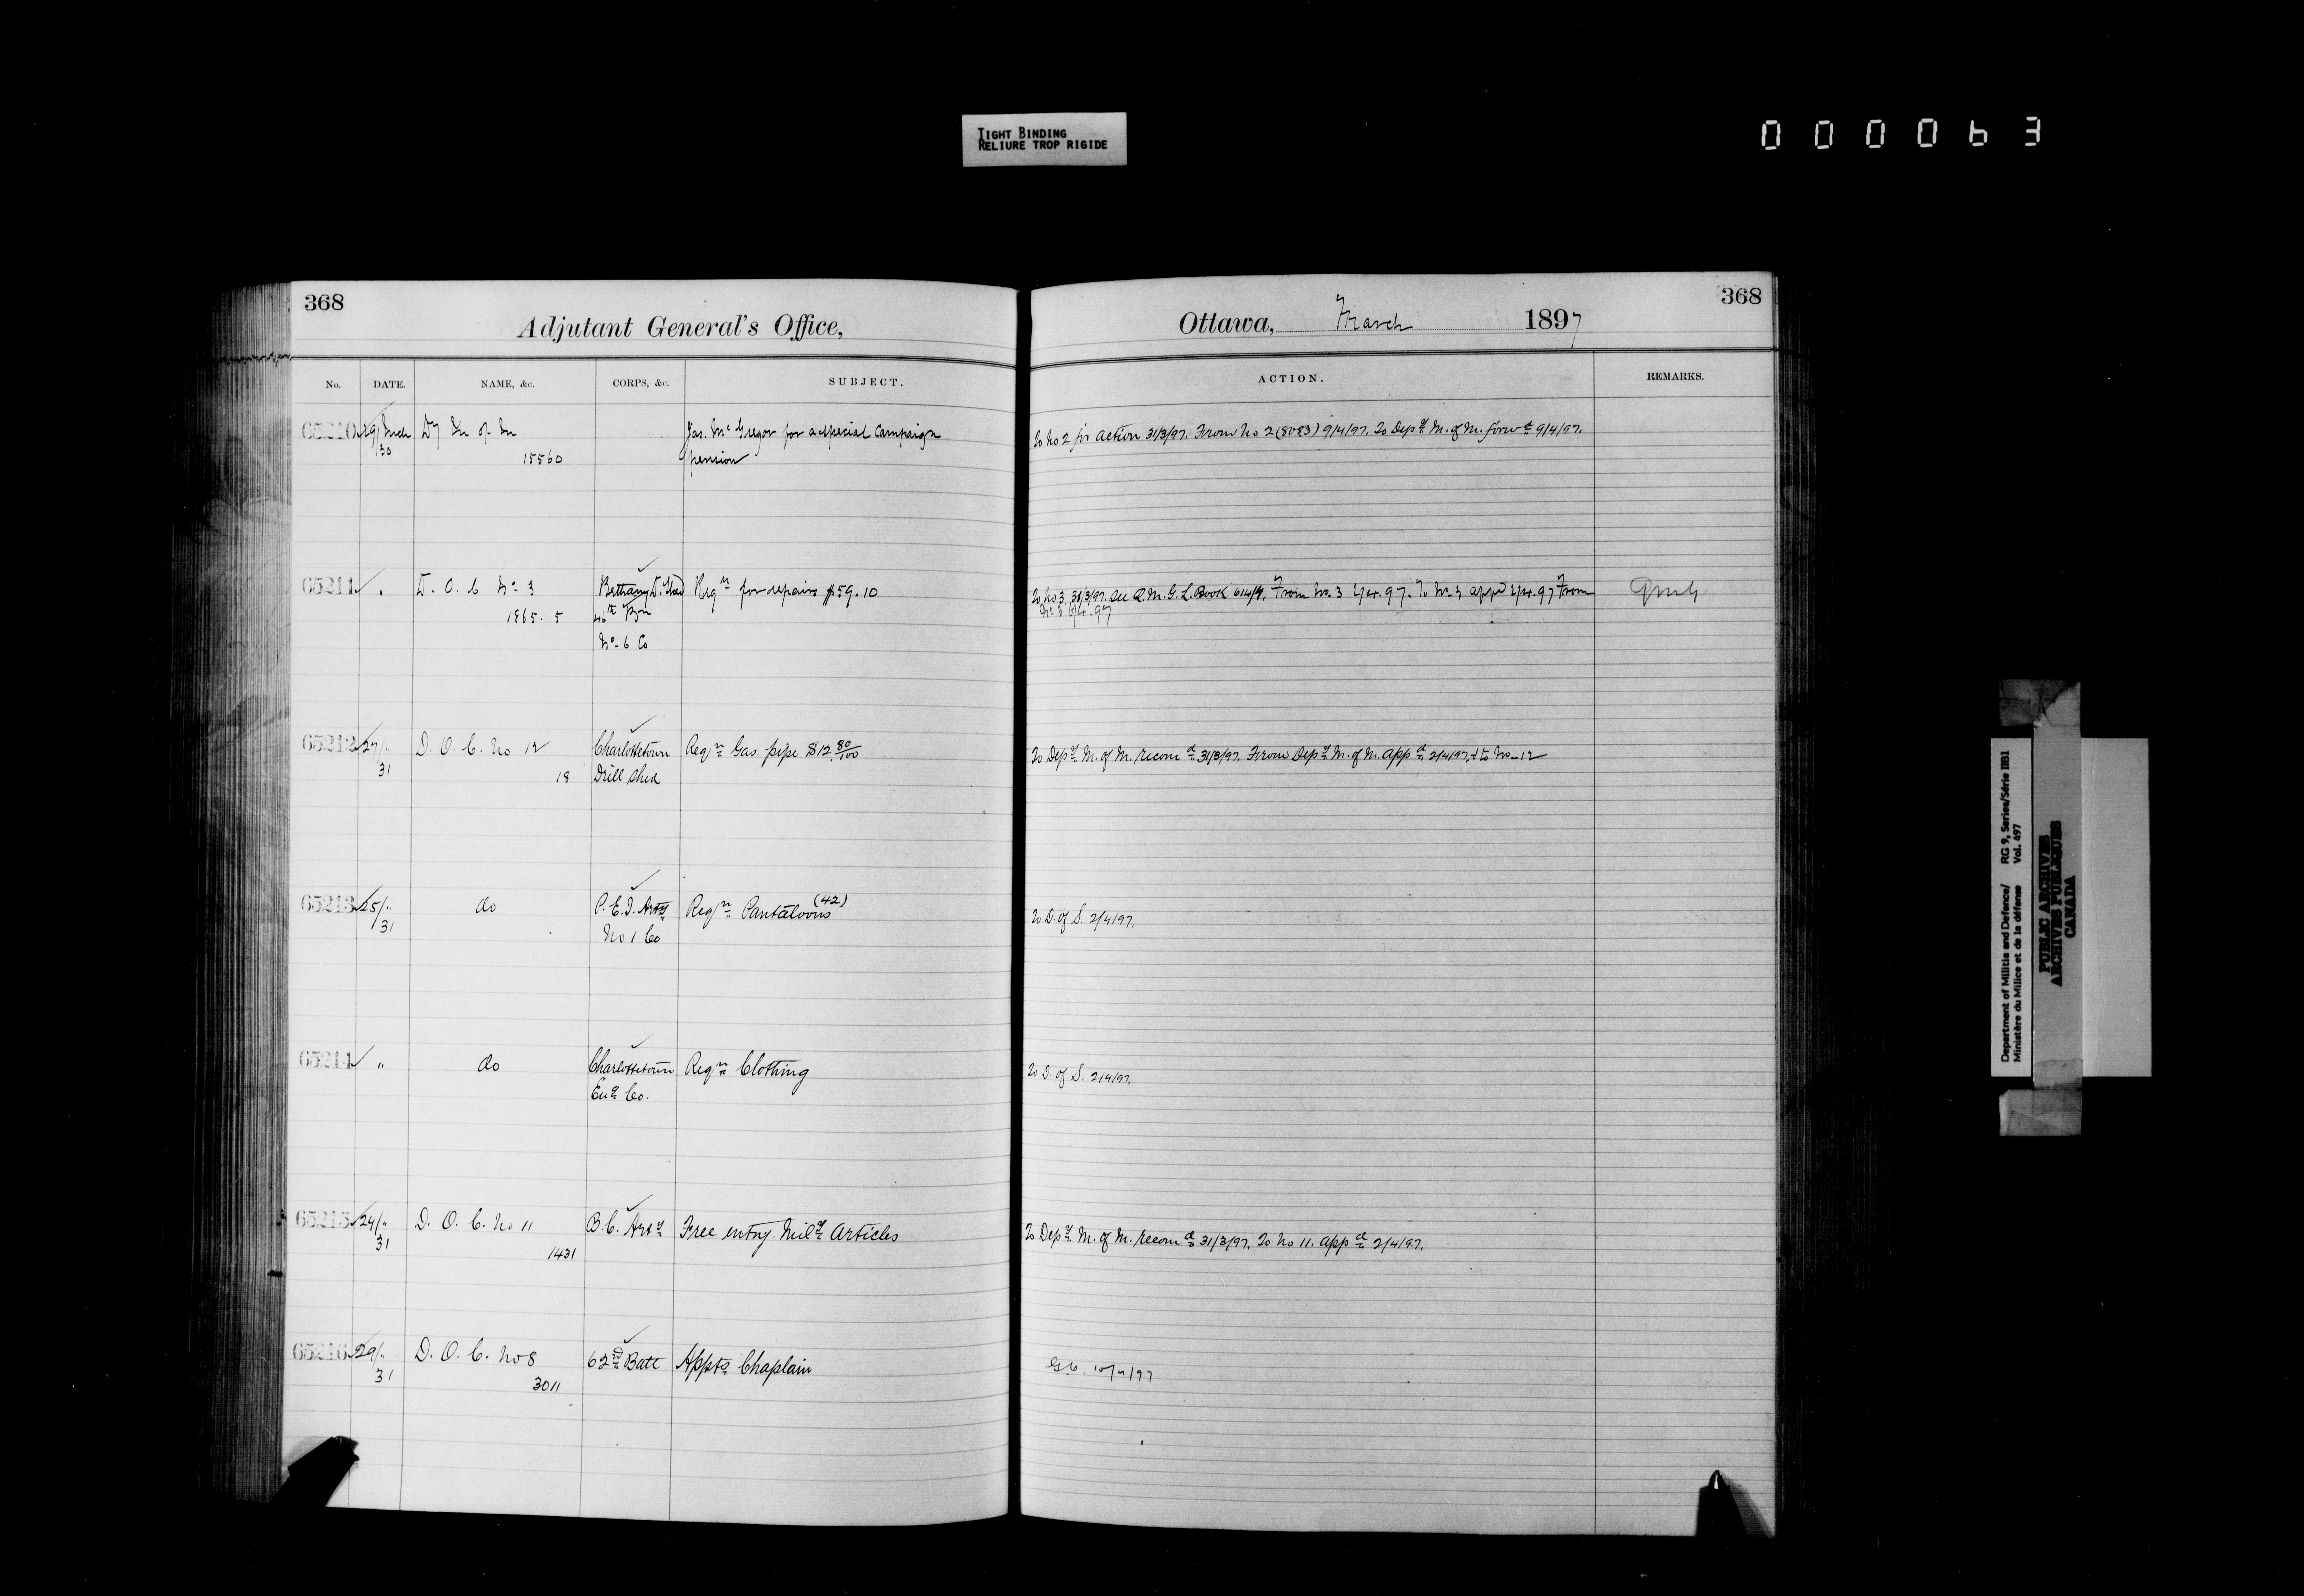 TIGHT BINDING
RELIURE TROP RIGIDE
000063
368
Adjutant General's Office,
No. DATE. NAME, &c. CORPS, &c. SUBJECT.
65210 29/Mch Dy M of M Jas. McGregor for a special Campaign
30 15560 pension
65211 " D. O. C No 3 Bethany D. Shed Reqn for repairs $59.10
1865. 5 46th Bn
No 6 Co
65212 27/" D. O. C. No 12 Charlottetown Reqn Gas pipe $12 80/100
31 18 Drill Shed
65213 25/" do P. E. I. Arty Reqn Pantaloons (42)
31 No 1 Co
65214 " do Charlottetown Reqn Clothing
Eng Co.
65215 24/" D. O. C. No 11 B. C. Arty Free entry Mily Articles
31 1431
65216 29/" D. O. C. No 8 62nd Batt Appt Chaplain
31 3011
368
Ottawa, March 1897
ACTION. REMARKS.
To No 2 for action 31/3/97. From No 2 (8083) 9/4/97. To Depy M. of M. forwd 9/4/97.
To No 3. 31/3/97. See Q.M.G. L. Book 614/9. From No. 3 2/4.97. To No. 3 appd 2/4.97 From
No. 3 6/4.97
To Depy M. of M. recomd 31/3/97. From Depy M. of M. appd 2/4/97. + to No-12
To D. of S. 2/4/97.
To D. of S. 2/4/97.
To Depy M. of M. recomd 31/3/97. To No 11. appd 2/4/97.
G.O. 10/4/97
Department of Militia and Defence/ RG 9, Series/Série IIB1
Ministère du Milice et de la défense Vol. 497
PUBLIC ARCHIVES
ARCHIVES PUBLIQUES
CANADA